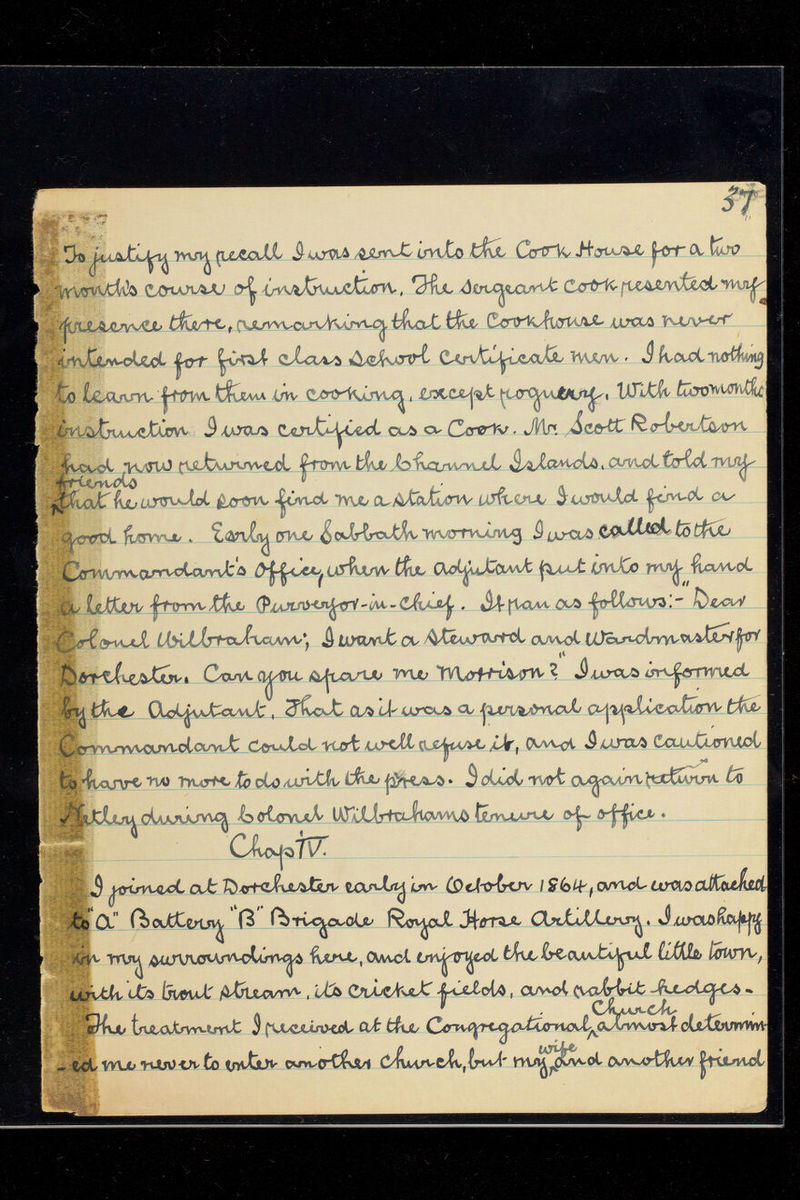 37
To justify my recall I was sent into the Cook House for a two
month's course of instruction. The Sergeant Cook resented my
presence there, remarking that the Cookhouse was never
intended for first class School Certificate men. I had nothing
to learn from them in cooking, except roguery. With two months
instruction I was certified as a Cook. Mr. Scott Robertson
had now returned from the Channel Islands, and told my
friends
that he would soon find me a station where I would find a
good home. Early one Sabbath morning I was called to the
Commandant's Office, when the adjutant put into my hand
a letter from the Purveyor-in-Chief. It ran as follows:- "Dear
Colonel Wilbraham; I want a Steward and Wardmaster for
Dorchester. Can you spare me Morrison?" I was informed
by the Adjutant, That as it was a personal application the
Commandant could not well refuse it, and I was cautioned
to have no more to do with the press. I did not again return to
Netley during Colonel Wilbrahams tenure of office.
Chap IV.
I joined at Dorchester early in October 1864, and was attached
to "A" Battery "B" Brigade Royal Horse Artillery. I was happy
in my surroundings here, and enjoyed the beautiful little town,
with its trout stream, its cricket fields, and rabbit hedges.
Church
The treatment I received at the Congregational almost determin
wife
-ed me never to enter another church, but my and another friend